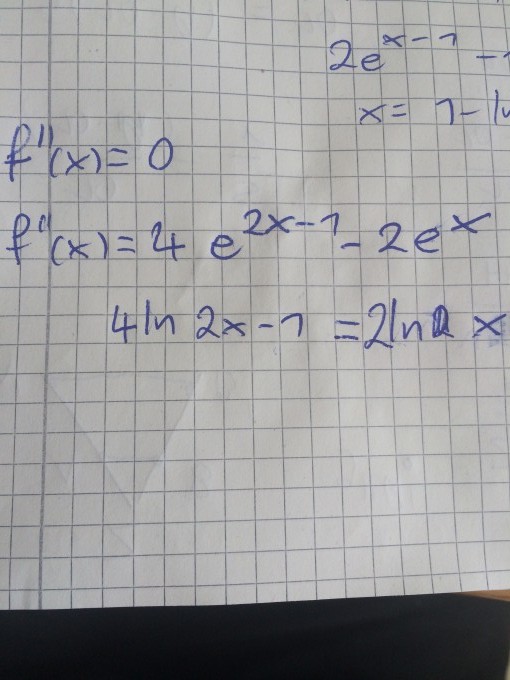 2e^{x-1} -
x = 1 - ln
f''(x) = 0
f''(x) = 4 e^{2x-1} - 2e^x
4 ln 2x - 1 = 2 ln x